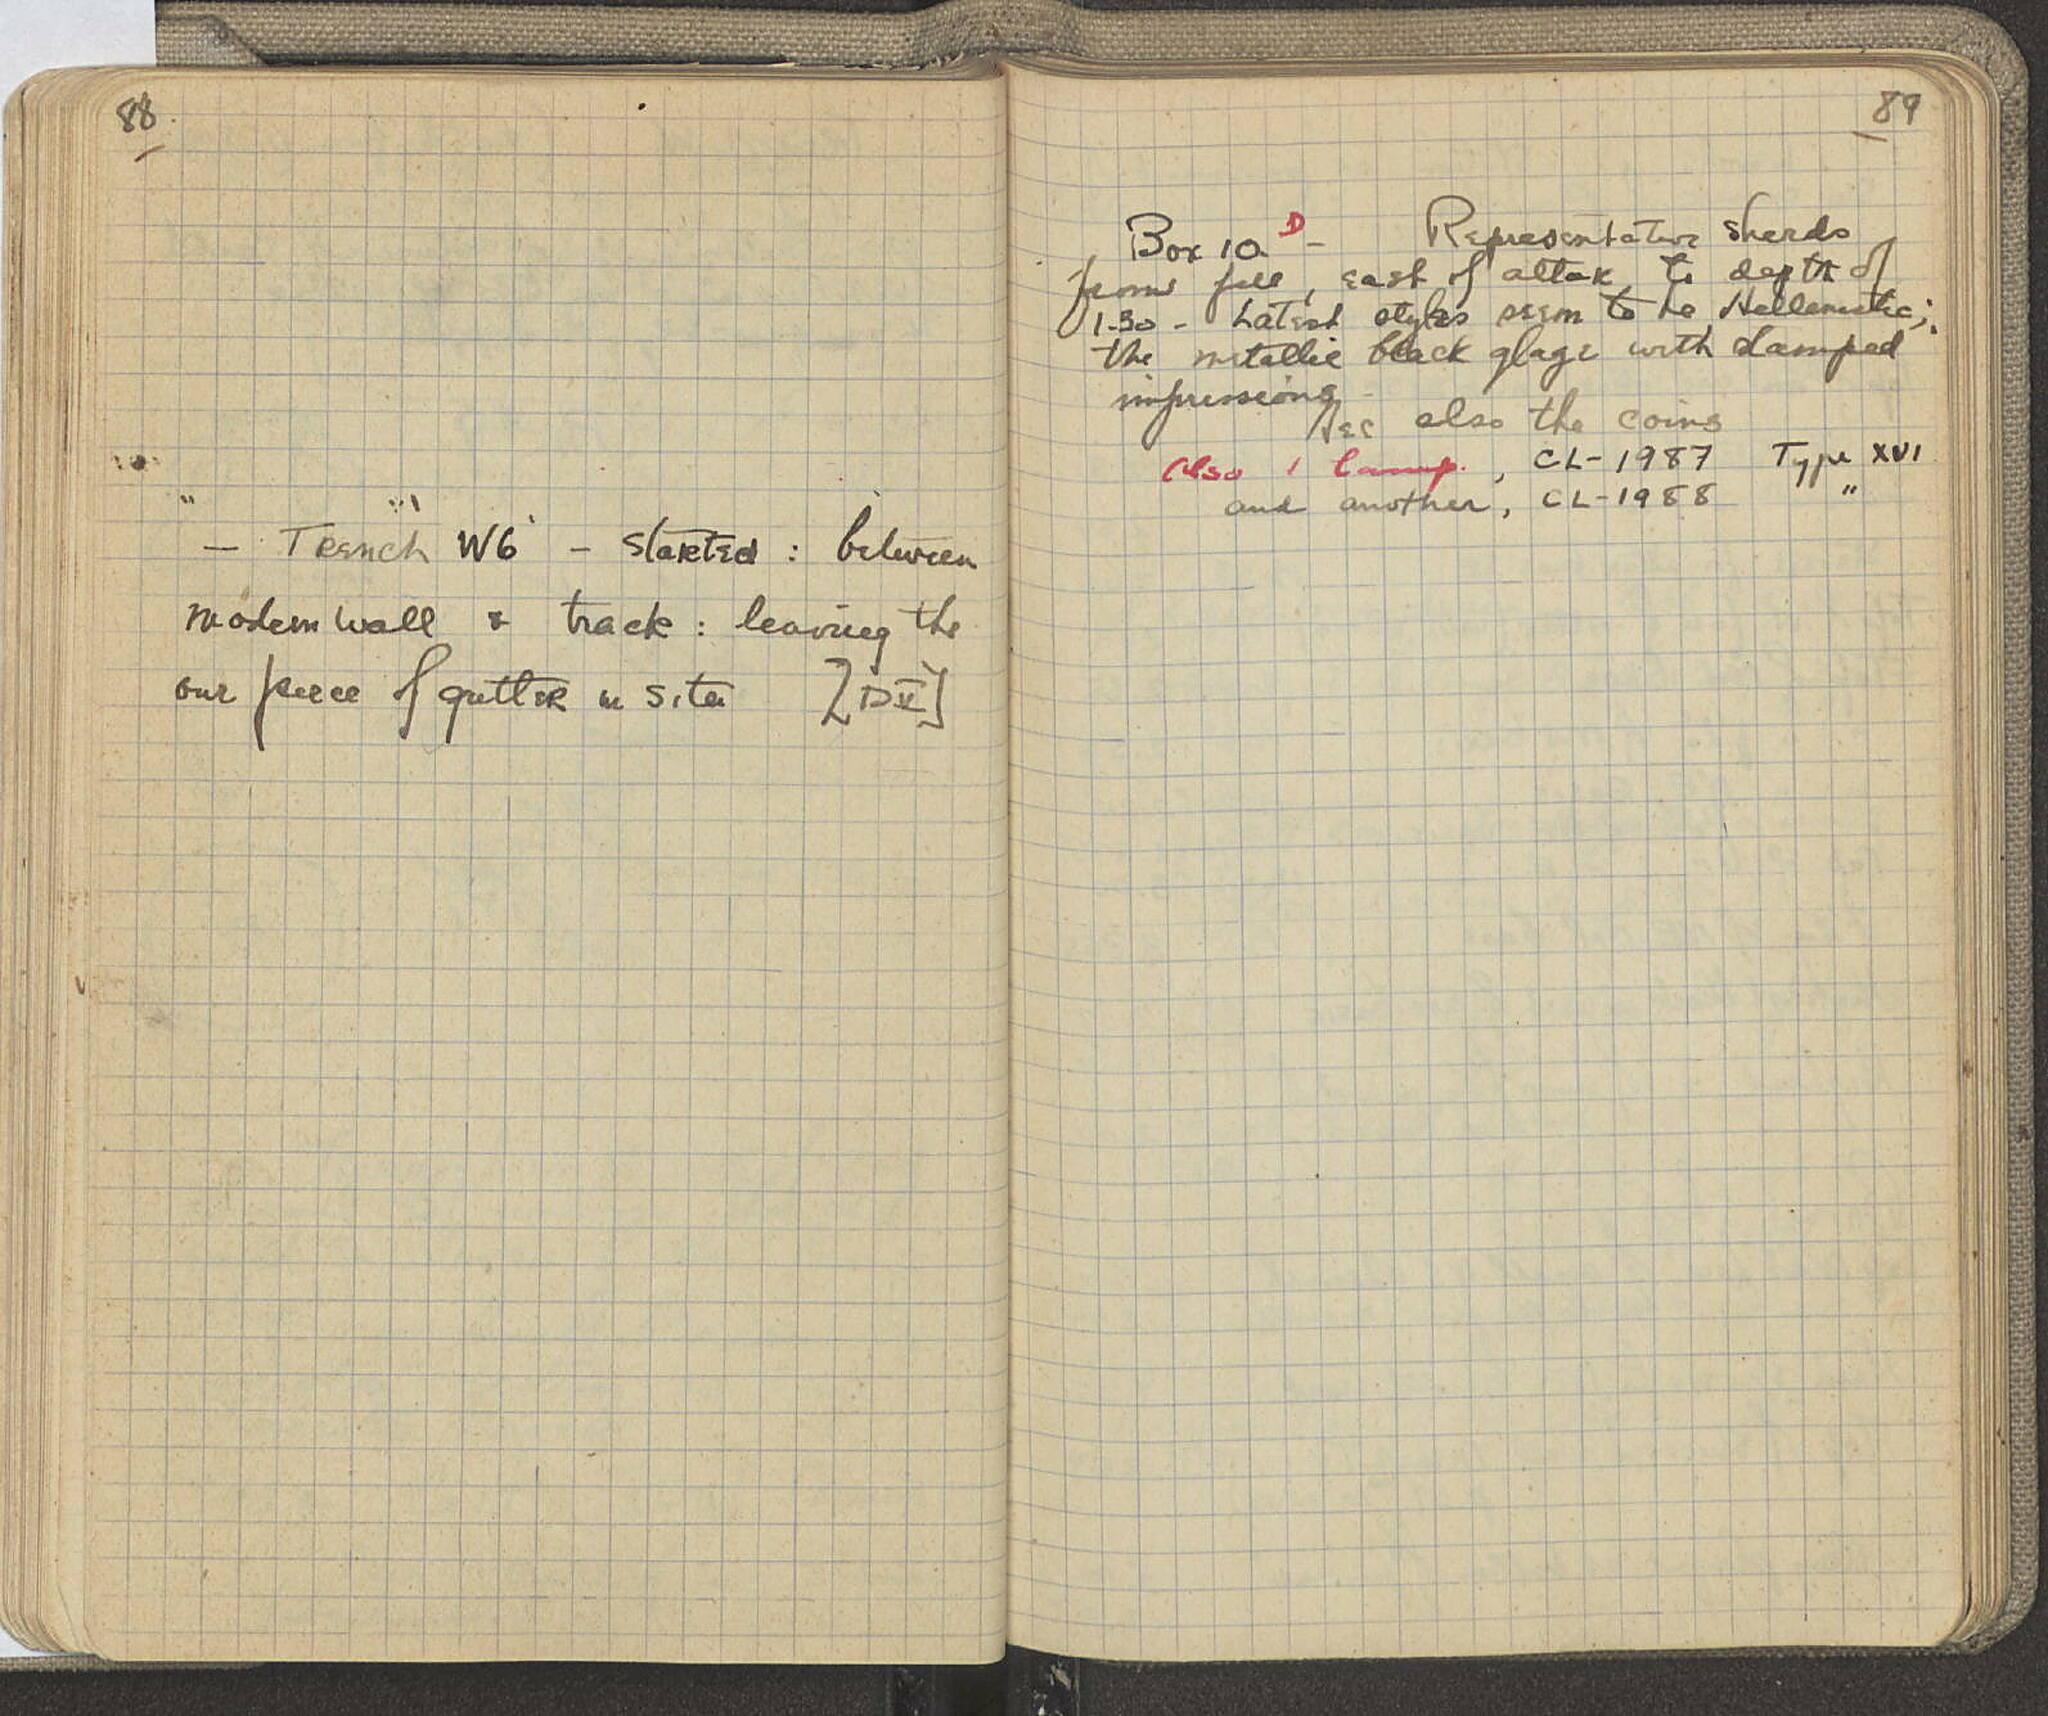 88
— Trench W6 — started : between
modern wall & track : leaving the
our piece of gutter in situ [DV]
89
Box 10 D — Representative sherds
from fill, east of altar to depth of
1.30 - Latest styles seem to be Hellenistic;
the metallic black glaze with stamped
impressions -
See also the coins
Also 1 lamp. , CL-1987 Type XVI
and another, CL-1988 "